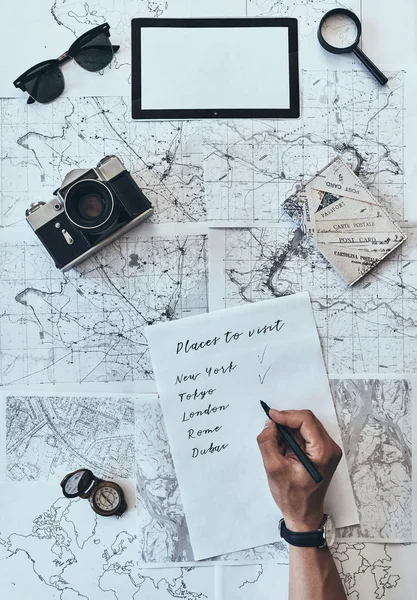 POST CARD
PASSPORT
CARTE POSTALE
POST CARD
CARTOLINA POSTALE
Places to visit
New York ✓
Tokyo ✓
London
Rome
Dubai